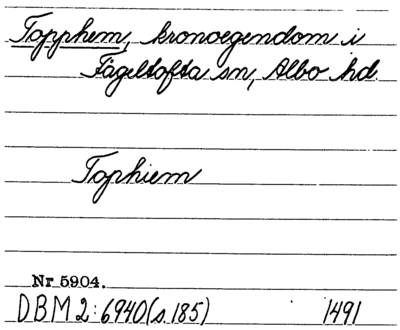 Topphem, kronoegendom i
Fågeltofta sn, Albo hd.
Tophiem
Nr 5904.
DBM 2:6940(s.185) 1491